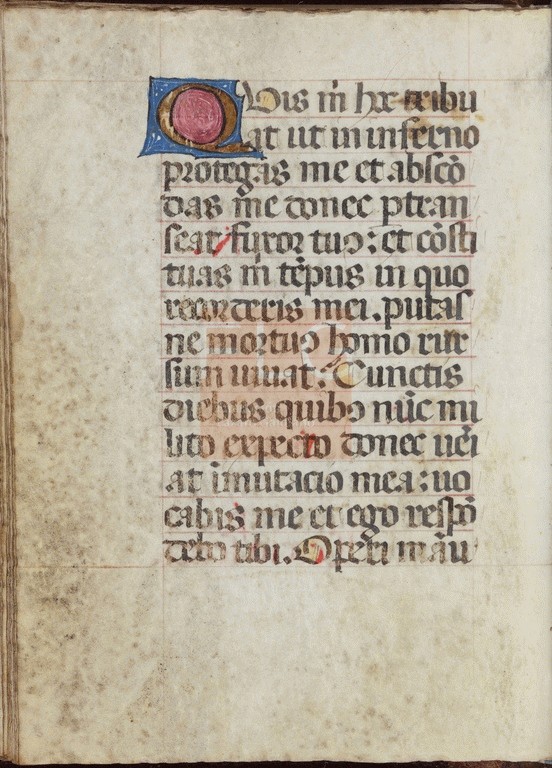 Quis m̄ hoc tribu
at ut in inferno
protegas me et abscō
das me donec ptran
seat furor tuꝰ: et cōsti
tuas m̄ tēpus in quo
recorderis mei. putas
ne mortuꝰ homo rur
sum uiuat: Cunctis
diebus quibꝰ nūc mi
lito expecto donec uēi
at īmutacio mea: uo
cabis me et ego respō
debo tibi. Operi māu